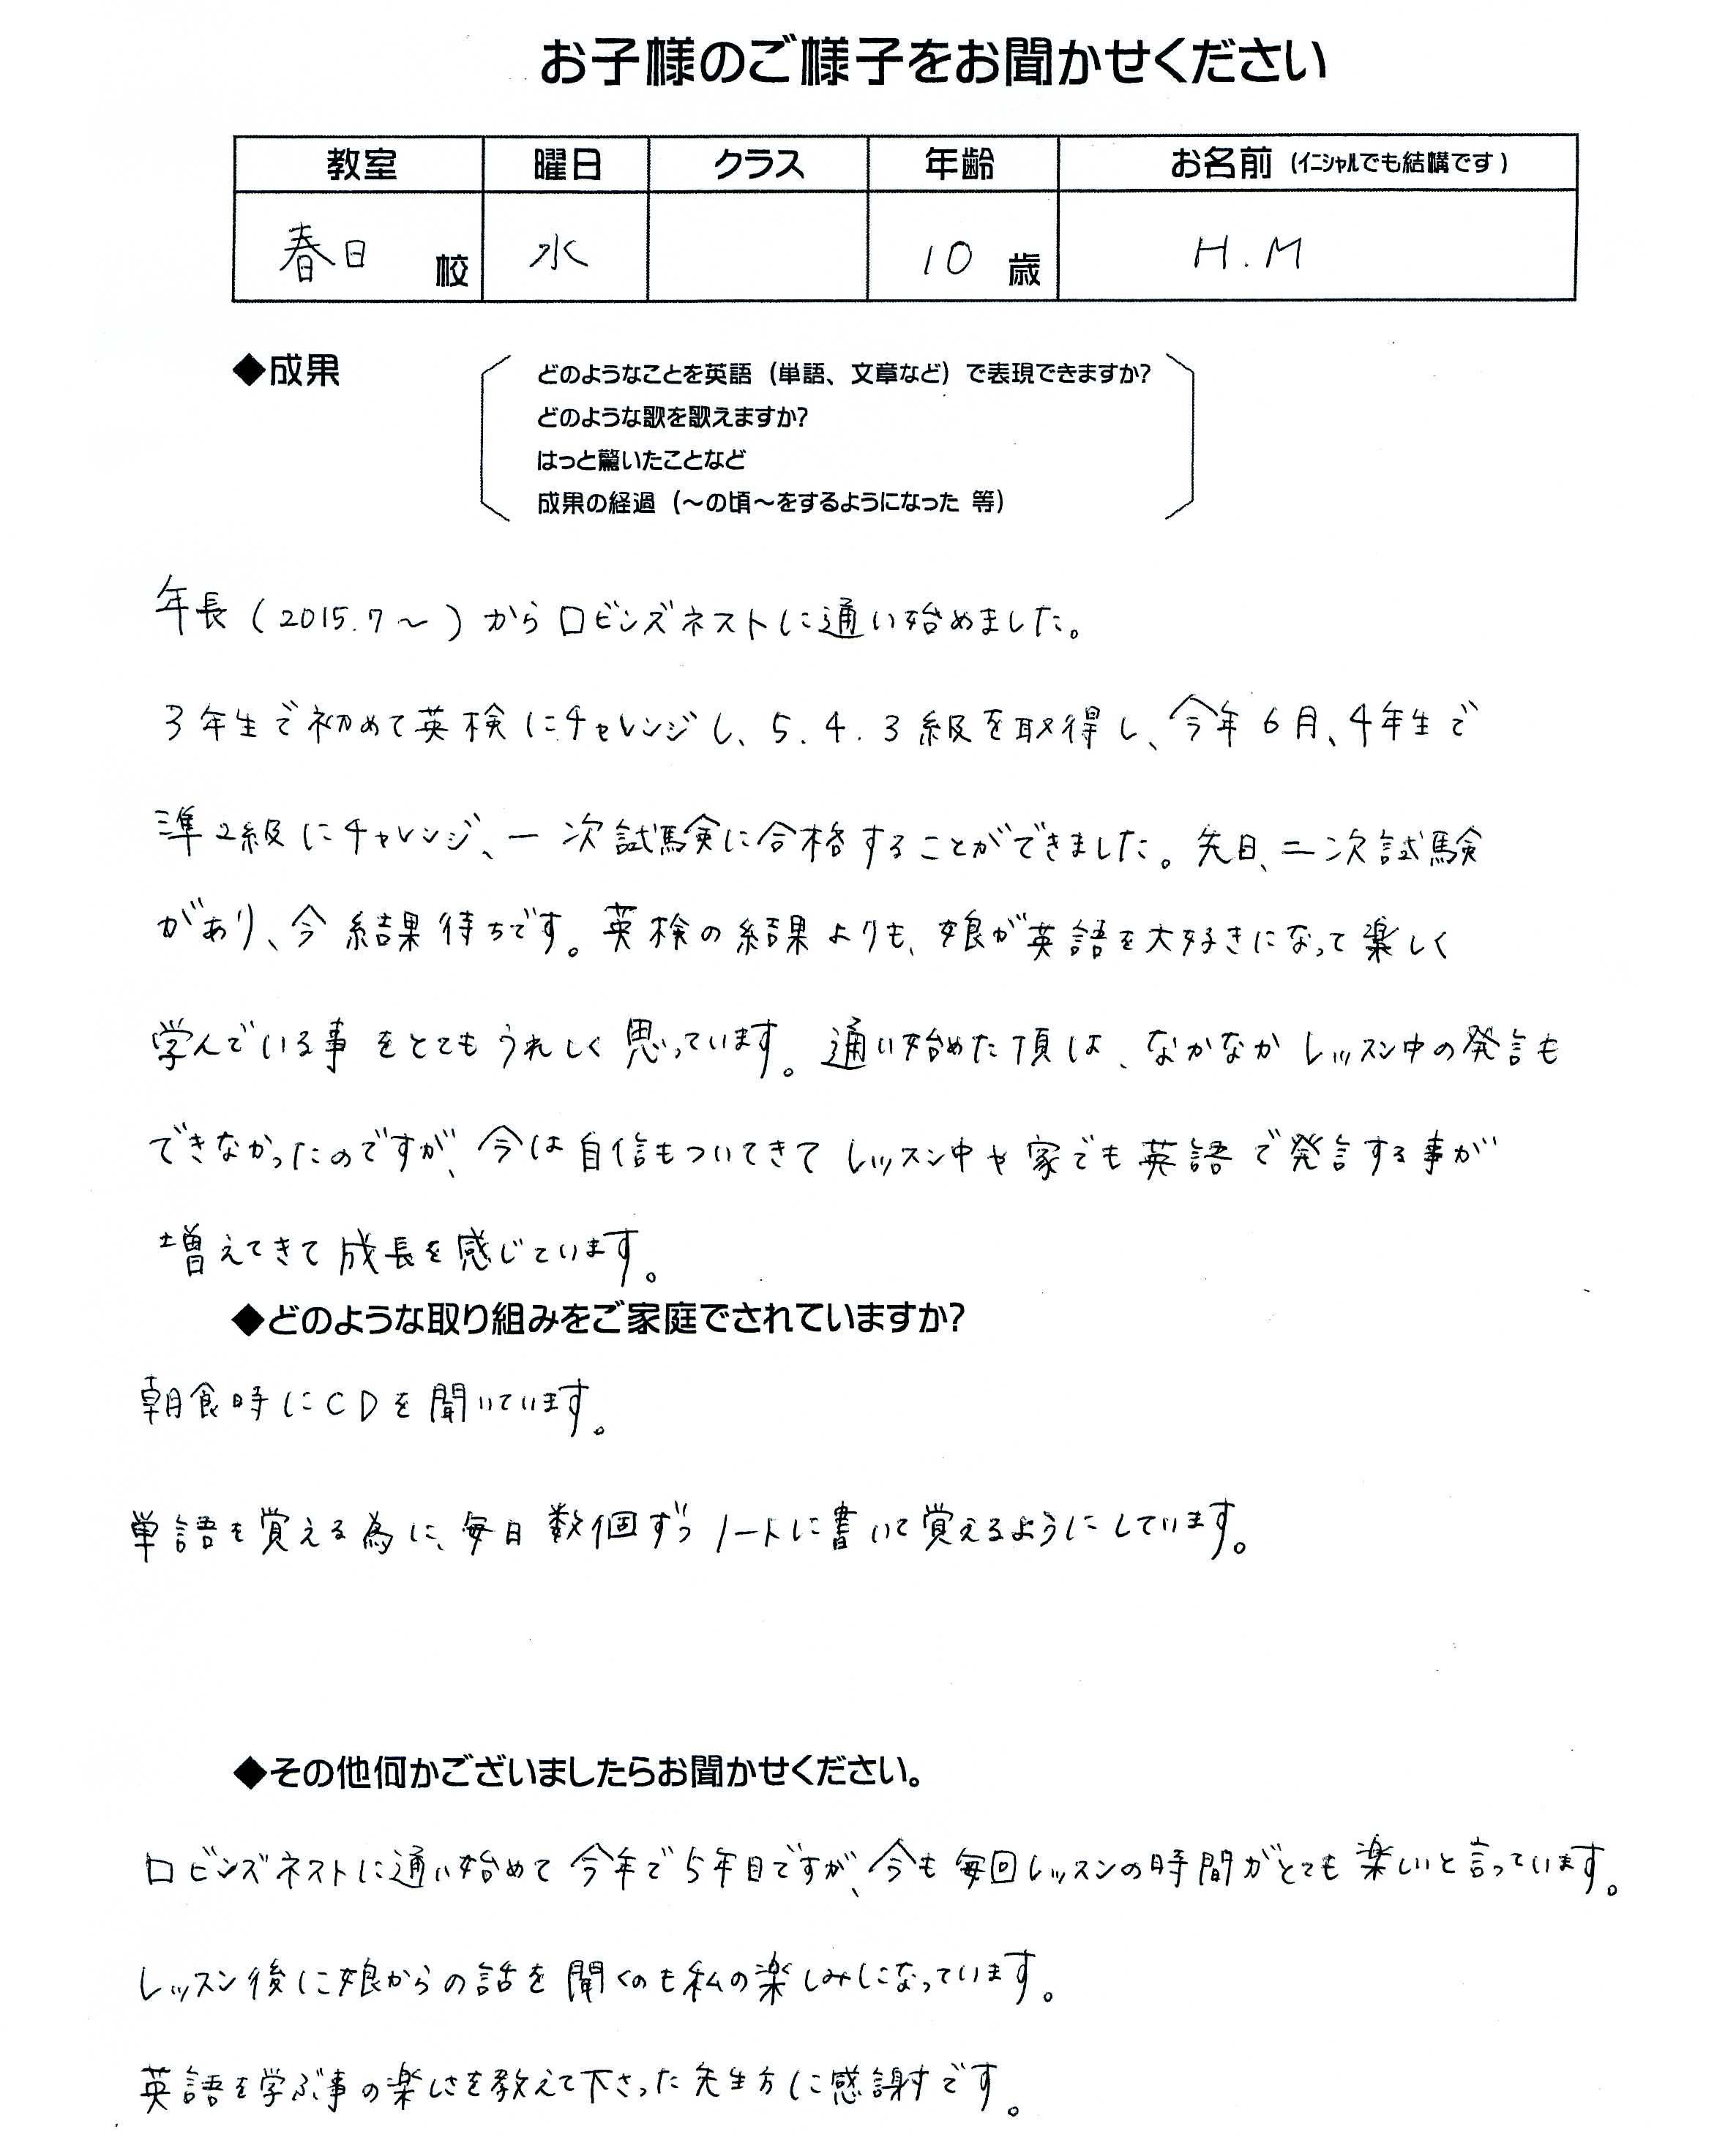 お子様のご様子をお聞かせください
教室 曜日 クラス 年齢 お名前 (イニシャルでも結構です)
春日 校 水 10 歳 H.M
◆成果
どのようなことを英語（単語、文章など）で表現できますか?
どのような歌を歌えますか?
はっと驚いたことなど
成果の経過（～の頃～をするようになった 等）
年長(2015.7～)からロビンズネストに通い始めました。
3年生で初めて英検にチャレンジし、5.4.3級を取得し、今年6月、4年生で
準2級にチャレンジ、一次試験に合格することができました。先日、二次試験
があり、今結果待ちです。英検の結果よりも、娘が英語を大好きになって楽しく
学んでいる事をとてもうれしく思っています。通い始めた頃は、なかなかレッスン中の発言も
できなかったのですが、今は自信もついてきてレッスン中や家でも英語で発言する事が
増えてきて成長を感じています。
◆どのような取り組みをご家庭でされていますか?
朝食時にCDを聞いています。
単語を覚える為に、毎日数個ずつノートに書いて覚えるようにしています。
◆その他何かございましたらお聞かせください。
ロビンズネストに通い始めて今年で5年目ですが、今も毎回レッスンの時間がとても楽しいと言っています。
レッスン後に娘からの話を聞くのも私の楽しみになっています。
英語を学ぶ事の楽しさを教えて下さった先生方に感謝です。